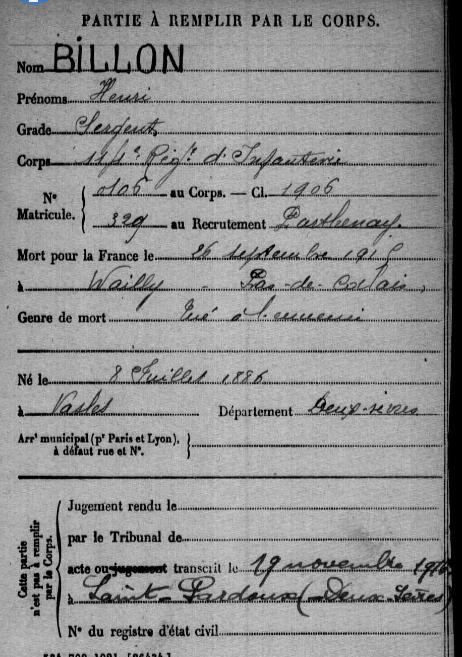 PARTIE À REMPLIR PAR LE CORPS.
Nom BILLON
Prénoms Henri
Grade Sergent
Corps 114e Régt d'Infanterie
N° Matricule. { 0105 au Corps. — Cl. 1906
329 au Recrutement Parthenay.
Mort pour la France le 26 septembre 1915
à Wailly - Pas-de-Calais,
Genre de mort Tué à l'ennemi
Né le 8 Juillet 1886
à Vasles Département Deux-sèvres
Arrt municipal (pr Paris et Lyon), à défaut rue et N°. }
Cette partie n'est pas à remplir par le Corps.
Jugement rendu le
par le Tribunal de
acte ou jugement transcrit le 19 novembre 1916
à Saint-Pardoux (Deux-Sèvres)
N° du registre d'état civil